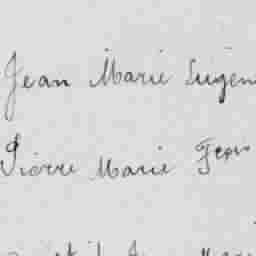 Jean Marie Eugèn
Pierre Marie Fran